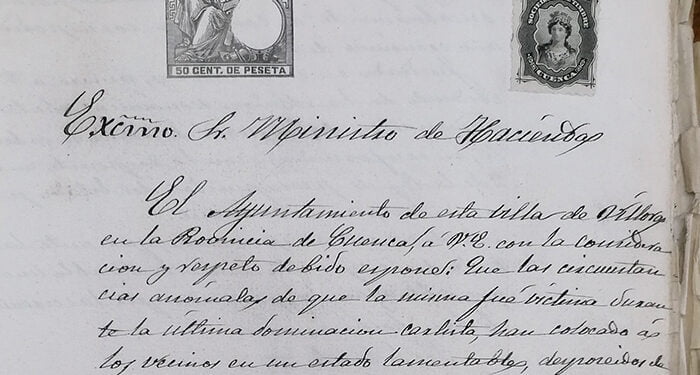 50 CENT. DE PESETA
CUENCA
Excmo. Sr. Ministro de Hacienda
El Ayuntamiento de esta villa de
en la Provincia de Cuenca, á V.E. con la considera
cion y respeto debido espone: Que las circustan
cias anómalas de que la misma fué victima duran
te la última dominacion carlista, han colocado á
los vecinos en un estado lamentable, desposeidos de